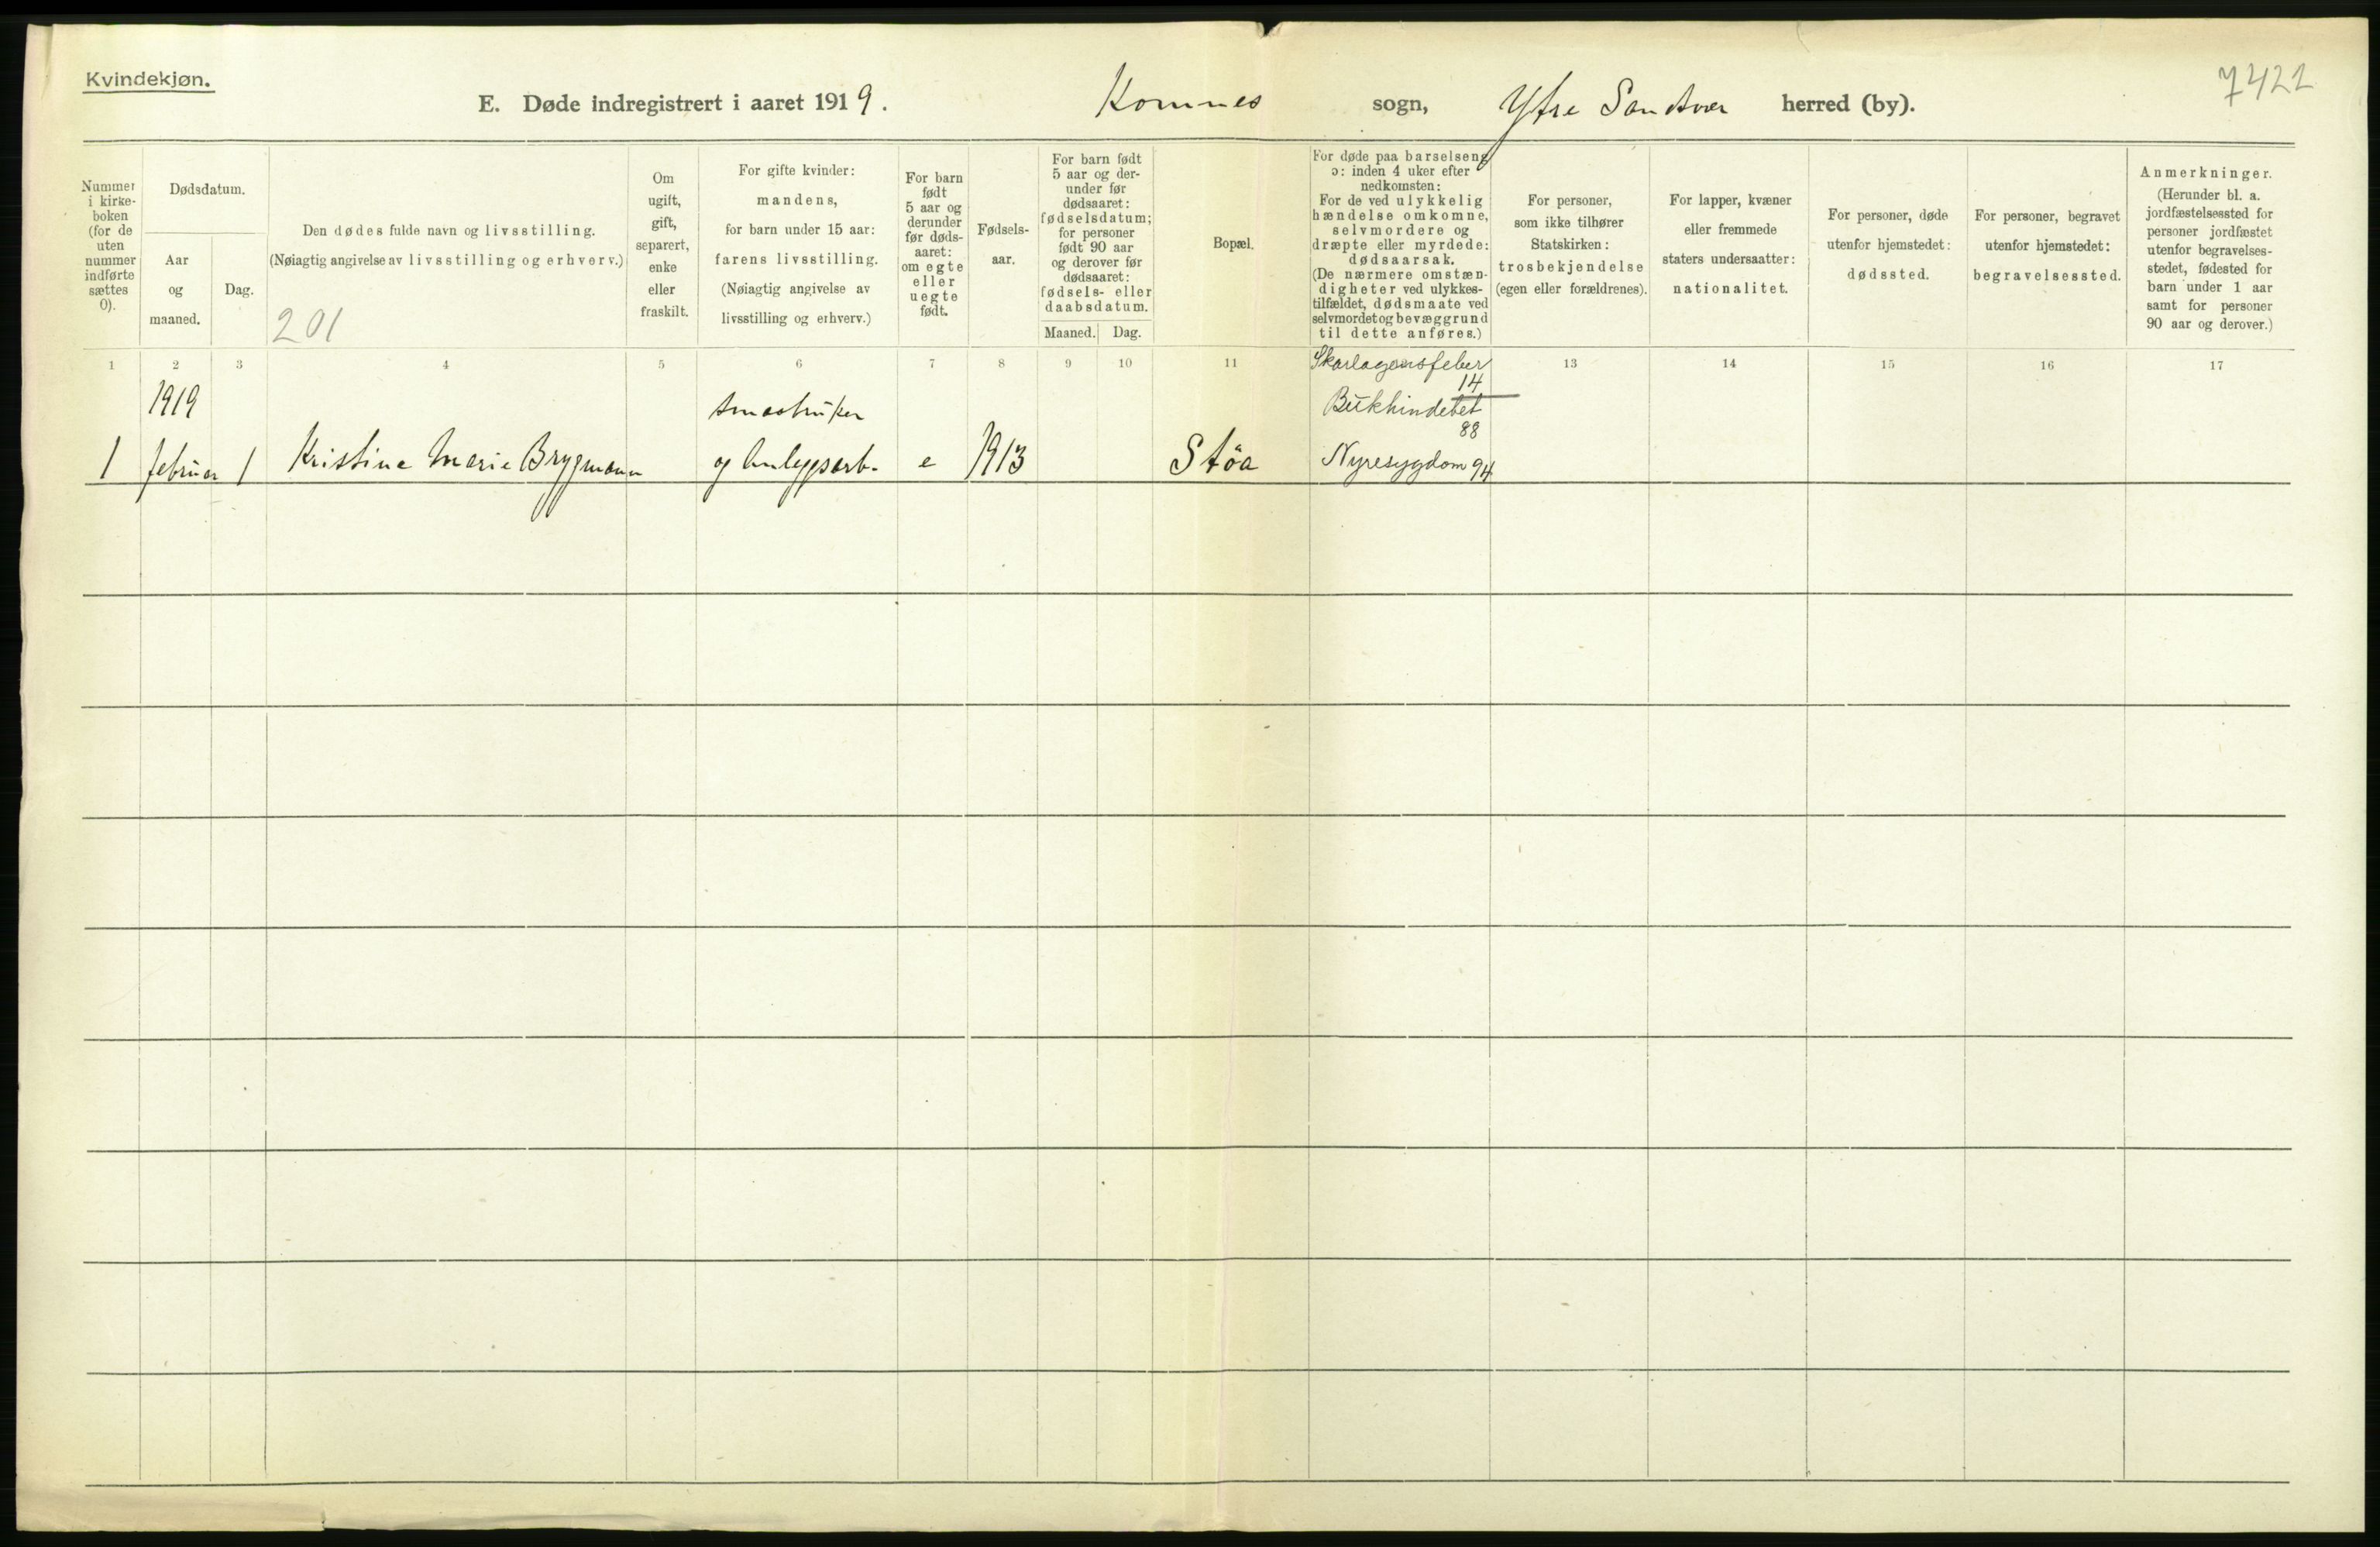 Kvindekjøn.
E. Døde indregistrert i aaret 1919. Komnes sogn, Ytre Sandsvær herred (by).
7422
Nummer i kirke-boken (for de uten nummer indførte sættes 0).
Dødsdatum.
Aar og maaned.
Dag.
Den dødes fulde navn og livsstilling.
(Nøiagtig angivelse av livsstilling og erhverv.)
201
Om ugift, gift, separert, enke eller fraskilt.
For gifte kvinder:
mandens,
for barn under 15 aar:
farens livsstilling.
(Nøiagtig angivelse av
livsstilling og erhverv.)
For barn født 5 aar og derunder før døds-aaret: om egte eller uegte født.
Fødsels-aar.
For barn født 5 aar og der-under før dødsaaret: fødselsdatum; for personer født 90 aar og derover før dødsaaret: fødsels- eller daabsdatum.
Maaned. Dag.
Bopæl.
For døde paa barselseng
ɔ: inden 4 uker efter
nedkomsten:
For de ved ulykkelig
hændelse omkomne,
selvmordere og
dræpte eller myrdede:
dødsaarsak.
(De nærmere omstæn-
digheter ved ulykkes-
tilfældet, dødsmaate ved
selvmordet og bevæggrund
til dette anføres.)
For personer,
som ikke tilhører
Statskirken:
trosbekjendelse
(egen eller forældrenes).
For lapper, kvæner
eller fremmede
staters undersaatter:
nationalitet.
For personer, døde
utenfor hjemstedet:
dødssted.
For personer, begravet
utenfor hjemstedet:
begravelsessted.
Anmerkninger.
(Herunder bl. a.
jordfæstelsessted for
personer jordfæstet
utenfor begravelses-
stedet, fødested for
barn under 1 aar
samt for personer
90 aar og derover.)
1 2 3 4 5 6 7 8 9 10 11 13 14 15 16 17
Skarlagensfeber
14
1919 smaabruker Bukhindebet
88
1 februar 1 Kristine Marie Brygmann og Anleggsarb. e 1913 Støa Nyresygdom 94